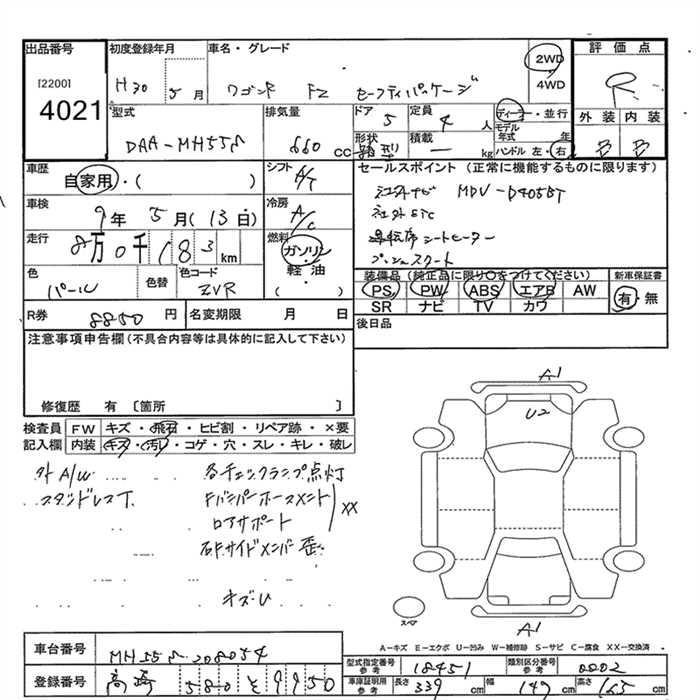 出品番号 初度登録年月 車名・グレード 評価点
[2200] H30 5月 ワゴンR FZ セーフティパッケージ 2WD 4WD R
4021
型式 排気量 ドア 定員 ディーラー・並行 外装 内装
DAA-MH55S 660 cc 5 4 人 モデル年式 年 B B
形状 型 積載 ー kg ハンドル 左・右
車歴 シフト セールスポイント (正常に機能するものに限ります)
自家用・( ) A/T 社外ナビ MDV-D405BT
車検 冷房 社外ETC
9年5月(13日) A/C 運転席シートヒーター
走行 燃料 プッシュスタート
8万0千183km ガソリン・軽油 ( )
装備品(純正品に限り○をつけてください) 新車保証書
色 色替 色コード PS PW ABS エアB AW 有・無
パール ZVR SR ナビ TV カワ
R券 8850円 名変期限 月 日 後日品
注意事項申告欄(不具合内容等は具体的に記入して下さい)
修復歴 有 〔箇所 〕
検査員 FW キズ・飛石・ヒビ割・リペア跡・×要
記入欄 内装 キズ・汚れ・コゲ・穴・スレ・キレ・破レ
外A/W 各チェックランプ点灯
スタッドレスT Fバンパーホースメント
ロアサポート XX
右Fサイドメンバー歪
キズU
A1
U2
スペア
A1
A-キズ E-エクボ U-凹み W-補修跡 S-サビ C-腐食 XX-交換済
車台番号 MH55S-208054
型式指定番号 参考 18451 類別区分番号 参考 0002
登録番号 高崎 580 そ 9950
車庫証明用 参考 長さ 339 cm 幅 147 cm 高さ 165 cm